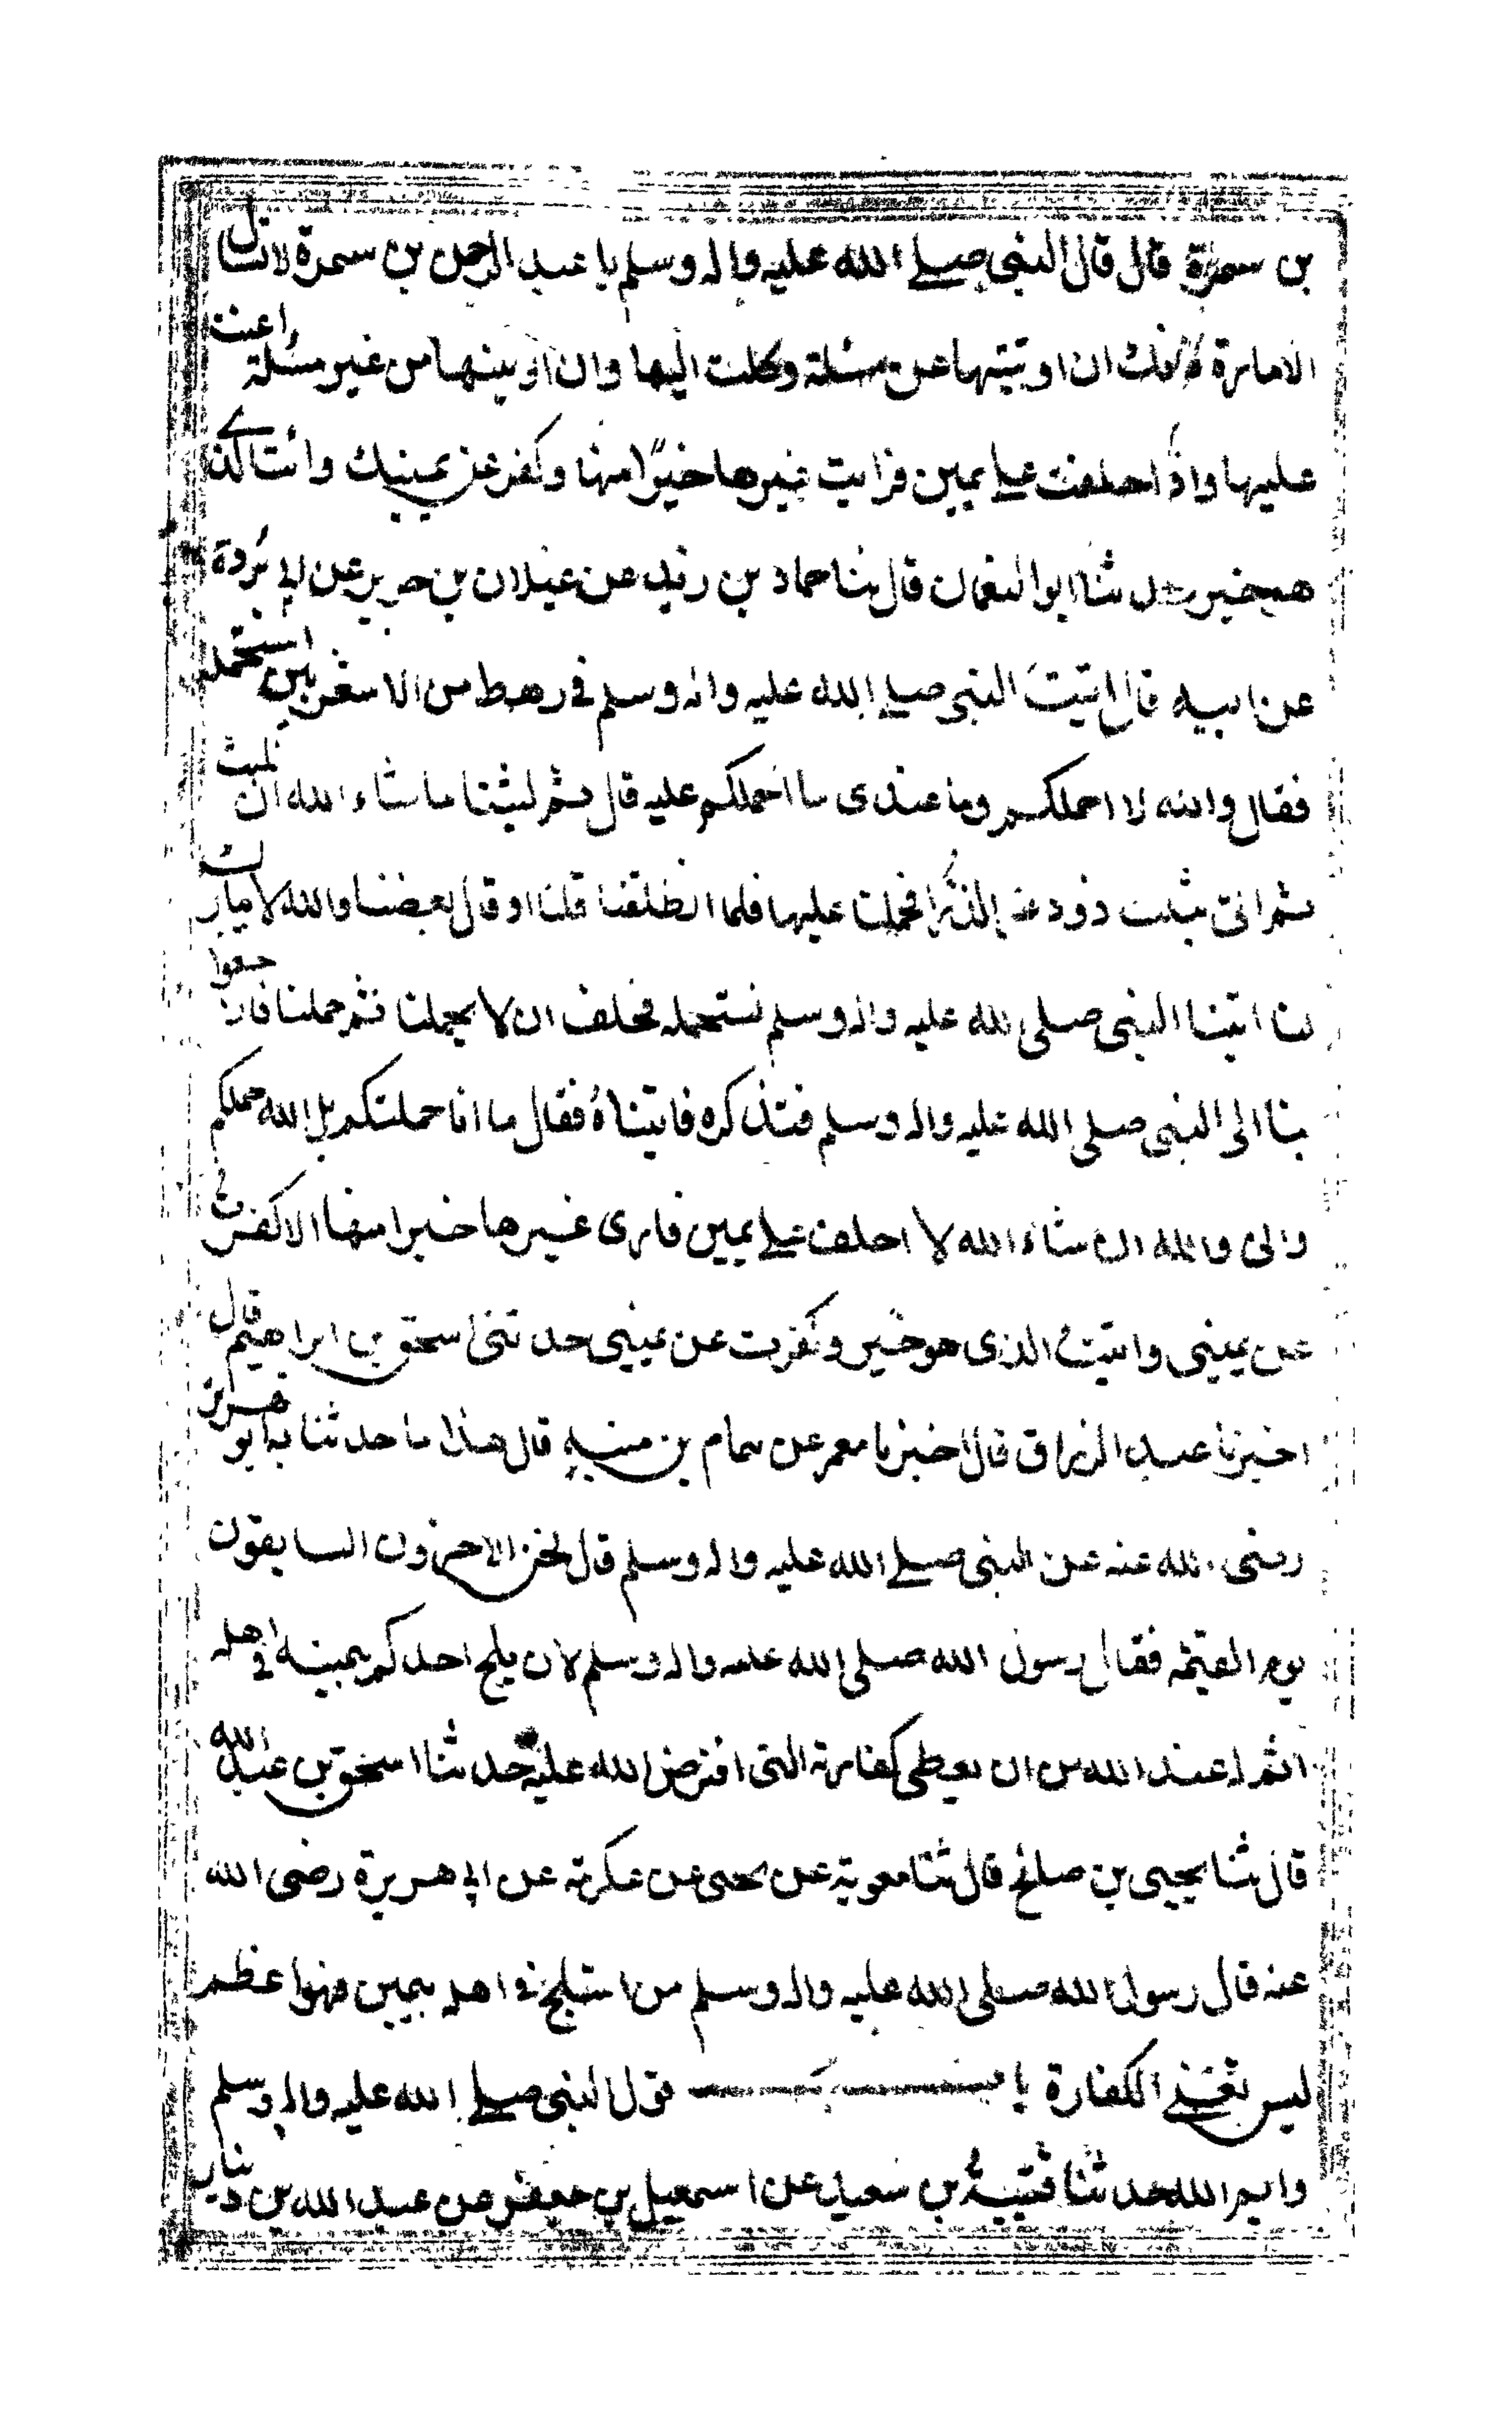 بن سمرة قال قال النبى صلى الله عليه واله وسلم يا عبد الرحمن بن سمرة لا تسأل
الامارة فانك ان اوتيتها عن مسئلة وكلت اليها وان اوتيتها من غير مسئلة اعنت
عليها واذا حلفت على يمين فرايت غيرها خيرًا منها وكفر عن يمينك وائت الذى
هو خير حدثنا ابو النعمان قال ثنا حماد بن زيد عن غيلان بن جرير عن ابى بُردة
عن ابيه قال اتيت النبى صلى الله عليه واله وسلم فى رهط من الاشعريين استحمله
فقال والله لا احملكم وما عندى ما احملكم عليه قال ثم لبثنا ما شاء الله ان نلبث
ثم اتى بثلث ذود غر الذُّرا فحملنا عليها فلما انطلقنا قلنا او قال بعضنا والله لا يبارك
لنا اتينا النبى صلى الله عليه واله وسلم نستحمله فحلف ان لا يحملنا ثم حملنا فارجعوا
بنا الى النبى صلى الله عليه واله وسلم فنذكره فاتيناهُ فقال ما انا حملتكم بل الله حملكم
وانى والله ان شاء الله لا احلف على يمين فارى غيرها خيرا منها الا كفرت
عن يمينى واتيت الذى هو خير وكفرت عن يمينى حدثنى اسحق بن ابراهيم قال
اخبرنا عبد الرزاق قال اخبرنا معمر عن همام بن منبه قال هذا ما حدثنا به ابو هريرة
رضى الله عنه عن النبى صلى الله عليه واله وسلم قال نحن الاخرون السابقون
يوم القيمة فقال رسول الله صلى الله عليه واله وسلم لان يلج احدكم بيمينه فى اهله
اثم له عند الله من ان يعطى كفارته التى افترض الله عليه حدثنا اسحق بن عبد الله
قال ثنا يحيى بن صالح قال ثنا معوية عن يحيى عن عكرمة عن ابى هريرة رضى الله
عنه قال رسول الله صلى الله عليه واله وسلم من استلج فى اهله بيمين فهو اعظم
ليس تغنى الكفارة باب قول النبى صلى الله عليه واله وسلم
وايم الله حدثنا قتيبة بن سعيد عن اسمعيل بن جعفر عن عبد الله بن دينار